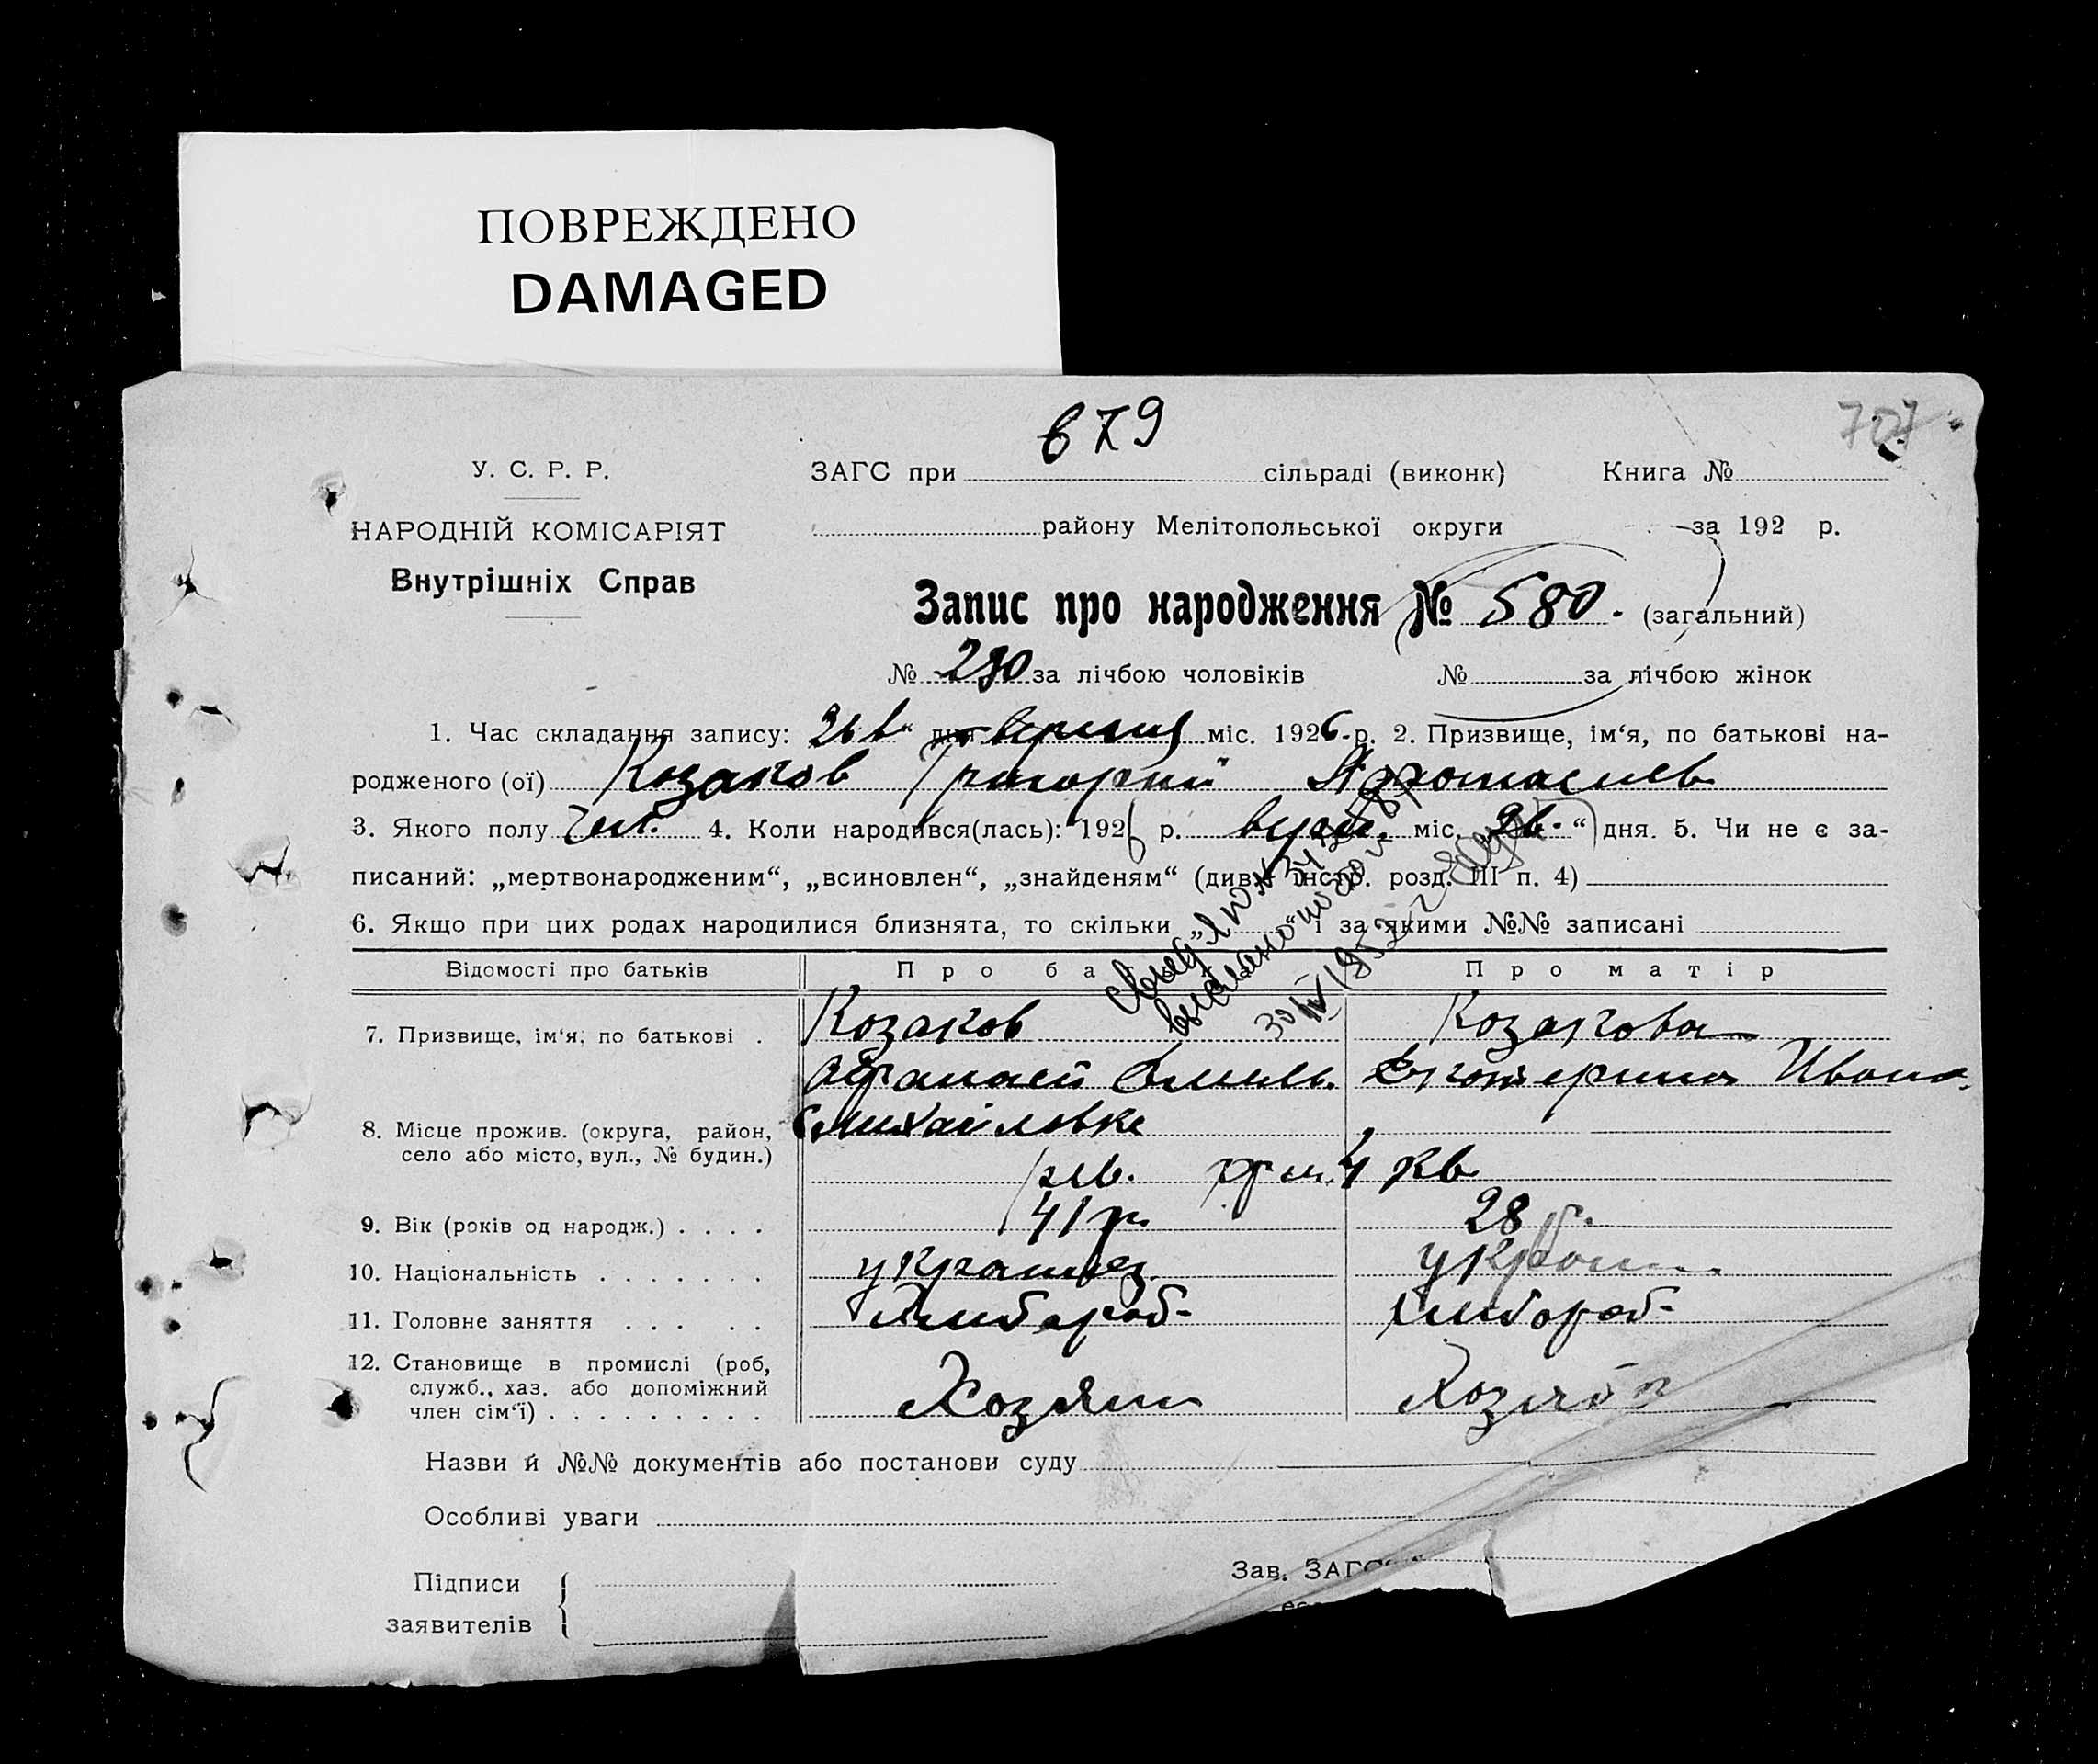 ПОВРЕЖДЕНО
DAMAGED
679
707
У. С. Р. Р.
ЗАГС при сільраді (виконк) Книга №
НАРОДНІЙ КОМІСАРІЯТ
району Мелітопольської округи за 192 р.
Внутрішніх Справ
Запис про народження № 580. (загальний)
№ за лічбою чоловіків № за лічбою жінок
1. Час складання запису: дня міс. 1926 р. 2. Призвище, ім‘я, по батькові на-
родженого (ої) Козаков Григорий
3. Якого полу 4. Коли народився(лась): 1926 р. міс. 26 “ дня. 5. Чи не є за-
писаний: „мертвонародженим“, „всиновлен“, „знайденям“ (див. інстр. розд. III п. 4)
6. Якщо при цих родах народилися близнята, то скільки „ і за якими №№ записані
Відомості про батьків Про ба Про матір
7. Призвище, ім‘я, по батькові . Козаков Козакова
Екатерина Ивано
8. Місце прожив. (округа, район, Михайловка
село або місто, вул., № будин.) 4 кв
9. Вік (років од народж.) . . . . 41 р. 28 р.
10. Національність . . . . . . . украинец
11. Головне заняття . . . . . хлибороб- хлибороб-
12. Становище в промислі (роб,
служб., хаз. або допоміжний Хозяин
член сім‘ї) . . . . . . . . .
30 IV 1952
Назви й №№ документів або постанови суду
Особливі уваги
Підписи Зав. ЗАГС
заявителів